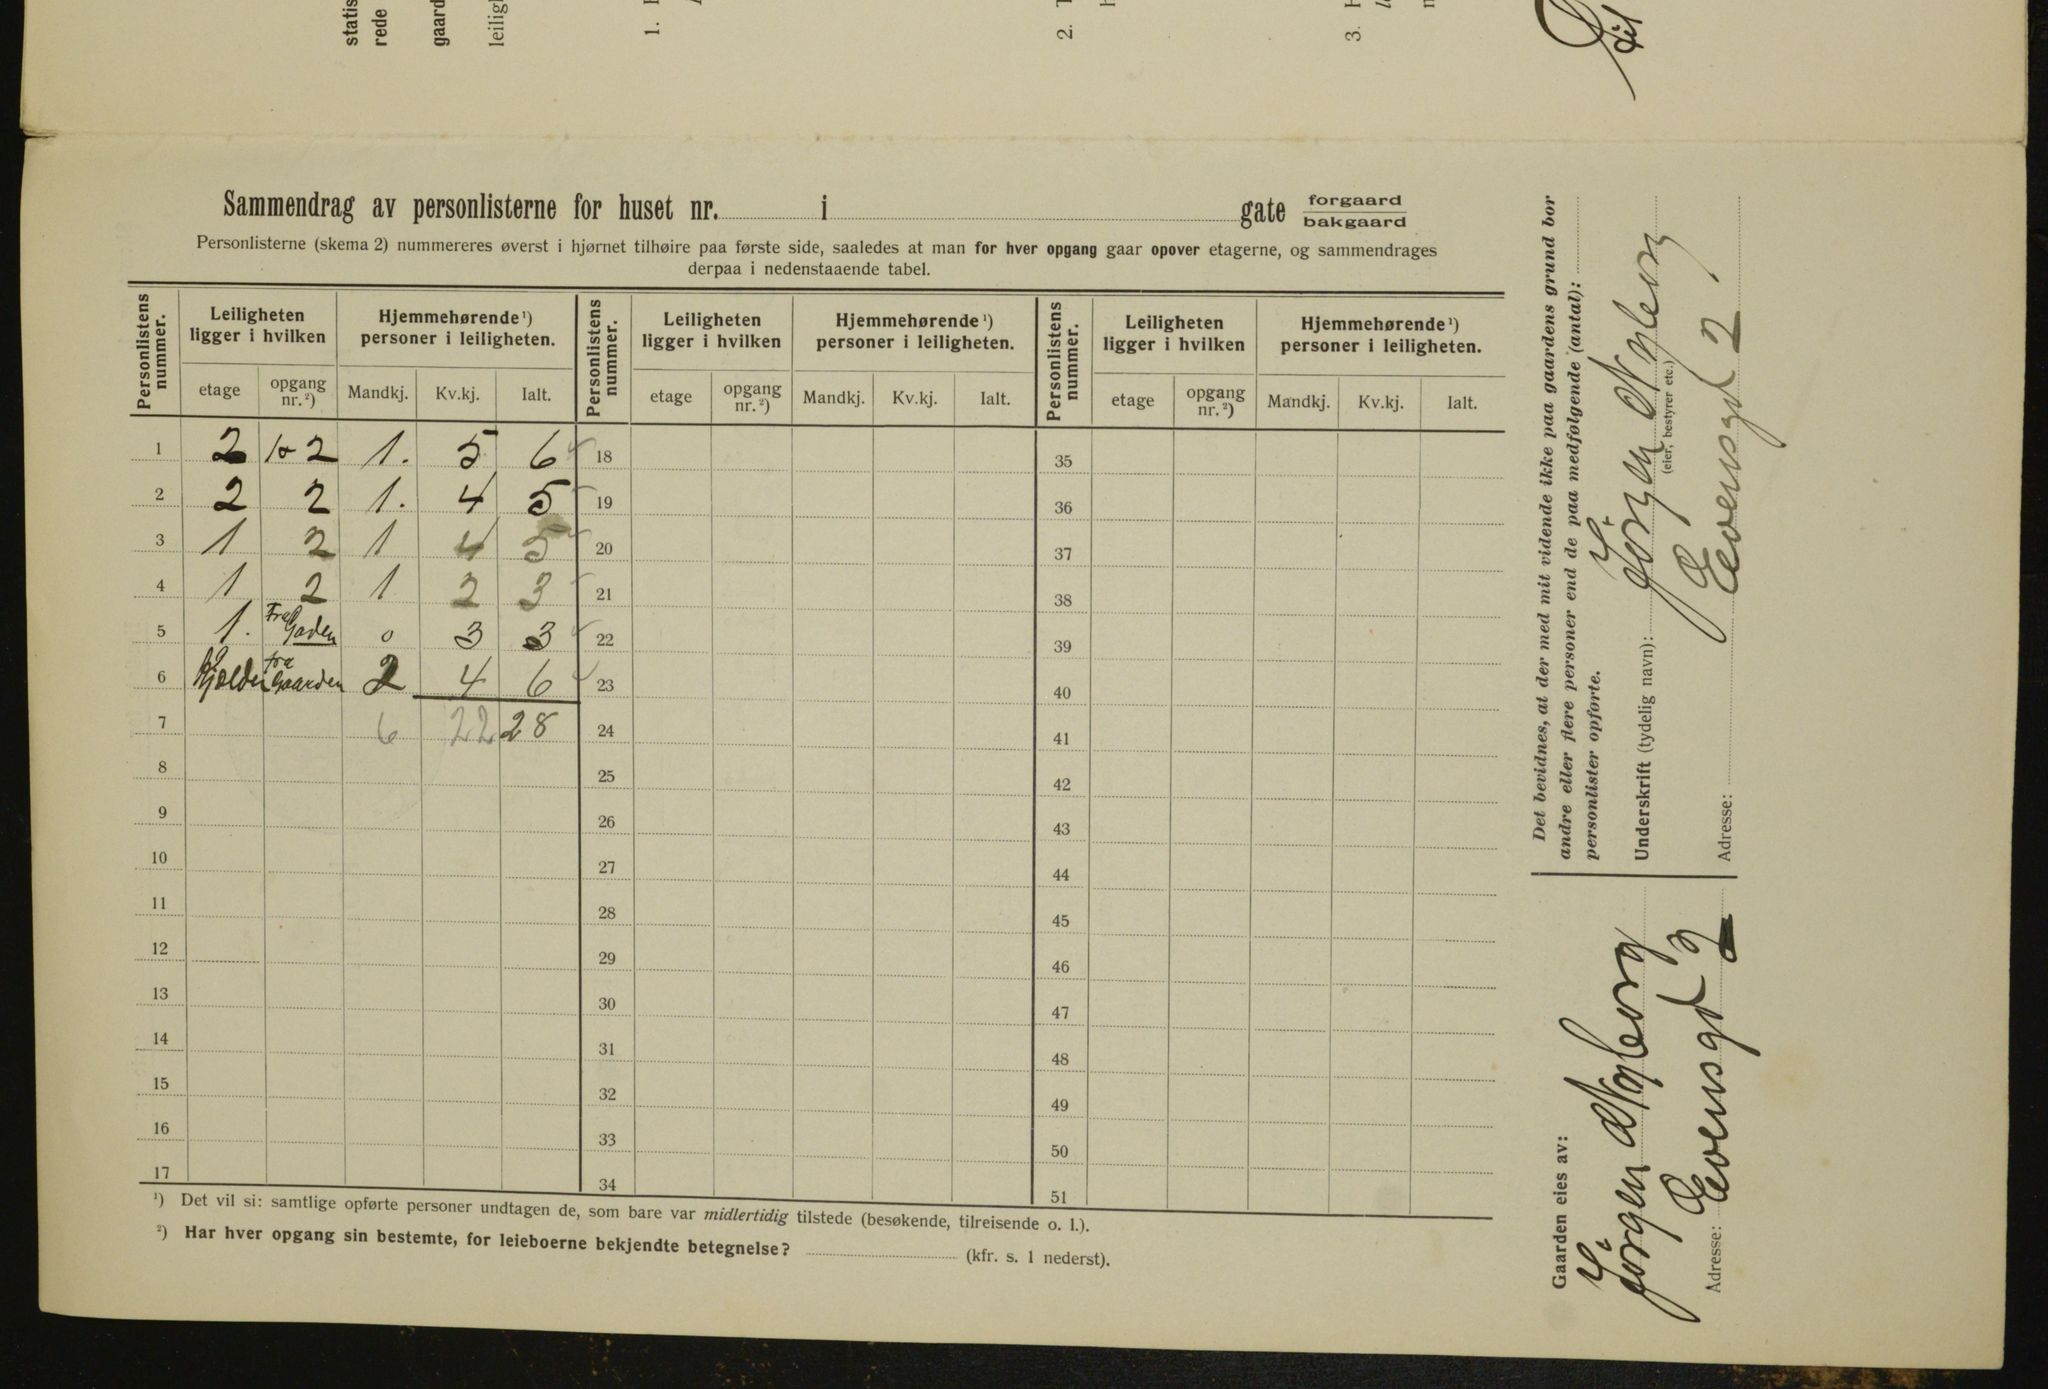 statis
rede
gaard
leilig
1.
2.
3.
til
Sammendrag av personlisterne for huset nr. i gate forgaard bakgaard
Personlisterne (skema 2) nummereres øverst i hjørnet tilhøire paa første side, saaledes at man for hver opgang gaar opover etagerne, og sammendrages
derpaa i nedenstaaende tabel.
Personlistens nummer. Leiligheten ligger i hvilken Hjemmehørende ¹) personer i leiligheten. Personlistens nummer. Leiligheten ligger i hvilken Hjemmehørende ¹) personer i leiligheten. Personlistens nummer. Leiligheten ligger i hvilken Hjemmehørende ¹) personer i leiligheten.
etage opgang nr. ²) Mandkj. Kv.kj. Ialt. etage opgang nr. ²) Mandkj. Kv.kj. Ialt. etage opgang nr. ²) Mandkj. Kv.kj. Ialt.
1 2 2 1. 5 6 18 35
2 2 2 1. 4 5 19 36
3 1 2 1 4 5 20 37
4 1 2 1 2 3 21 38
5 1. Fra Gaden 0 3 3 22 39
6 Kjælder fra Gaarden 2 4 6 23 40
7 6 22 28 24 41
8 25 42
9 26 43
10 27 44
11 28 45
12 29 46
13 30 47
14 31 48
15 32 49
16 33 50
17 34 51
¹) Det vil si: samtlige opførte personer undtagen de, som bare var midlertidig tilstede (besøkende, tilreisende o. l.).
²) Har hver opgang sin bestemte, for leieboerne bekjendte betegnelse? (kfr. s. 1 nederst).
Det bevidnes, at der med mit vidende ikke paa gaardens grund bor
andre eller flere personer end de paa medfølgende (antal):
personlister opførte.
Underskrift (tydelig navn): Jörgen Nyborg
(eier, bestyrer etc.)
Adresse: Evensgt 2
Gaarden eies av:
Jörgen Nyborg
Adresse: Evensgt 2